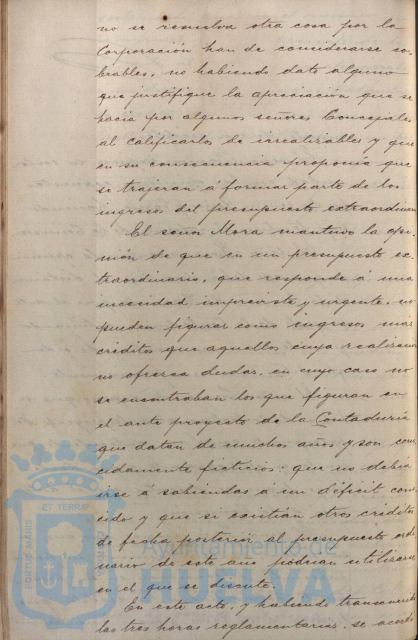 no se resuelva otra cosa por la
Corporación han de considerarse co-
brables, no habiendo dato alguno
que justifique la apreciación que se
hacía por algunos señores Concejales
al calificarlos de irrealizables y que
en su consecuencia proponía que
se trajeran á formar parte de los
ingresos del presupuesto extraordinario
El señor Mora mantuvo la opi-
nión de que en un presupuesto ex-
traordinario, que responde á una
necesidad imprevista y urgente, no
pueden figurar como ingresos mas
créditos que aquellos cuya realización
no ofrezca dudas, en cuyo caso no
se encontraban los que figuran en
el ante proyecto de la Contaduría
que datan de muchos años y son cono-
cidamente ficticios: que no debía
irse á sabiendas á un déficit cono-
cido y que si existían otros créditos
de fecha posterior al presupuesto ordi-
nario de este año podrían utilizarse
en el que se discute.
En este acto, y habiendo transcurrido
las tres horas reglamentarias, se acordó
PORTUS MARIS
ET TERRAE
Ayuntamiento de
HUELVA